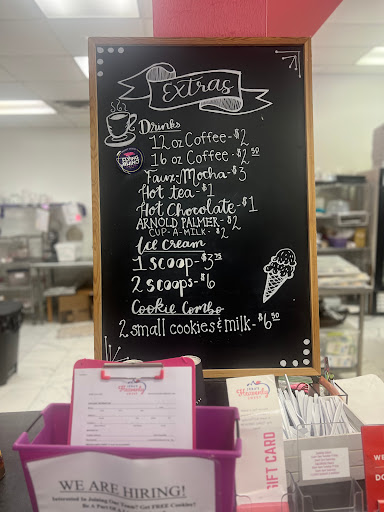 Extras
Drinks
12 oz Coffee - $2
16 oz Coffee - $2.50
Faux-Mocha - $3
Hot tea - $1
Hot Chocolate - $1
ARNOLD PALMER - $2
CUP-A-MILK - $2
Ice Cream
1 scoop - $3.75
2 scoops - $6
Cookie Combo
2 small cookies & milk - $6.50
GIFT CARD
WE ARE HIRING!
Interested In Joining Our Team? Get FREE Cookies!